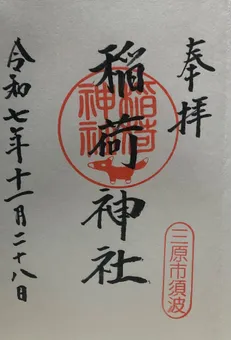 奉拝
稲荷神社
稲荷
神社
三原市須波
令和七年十一月二十八日